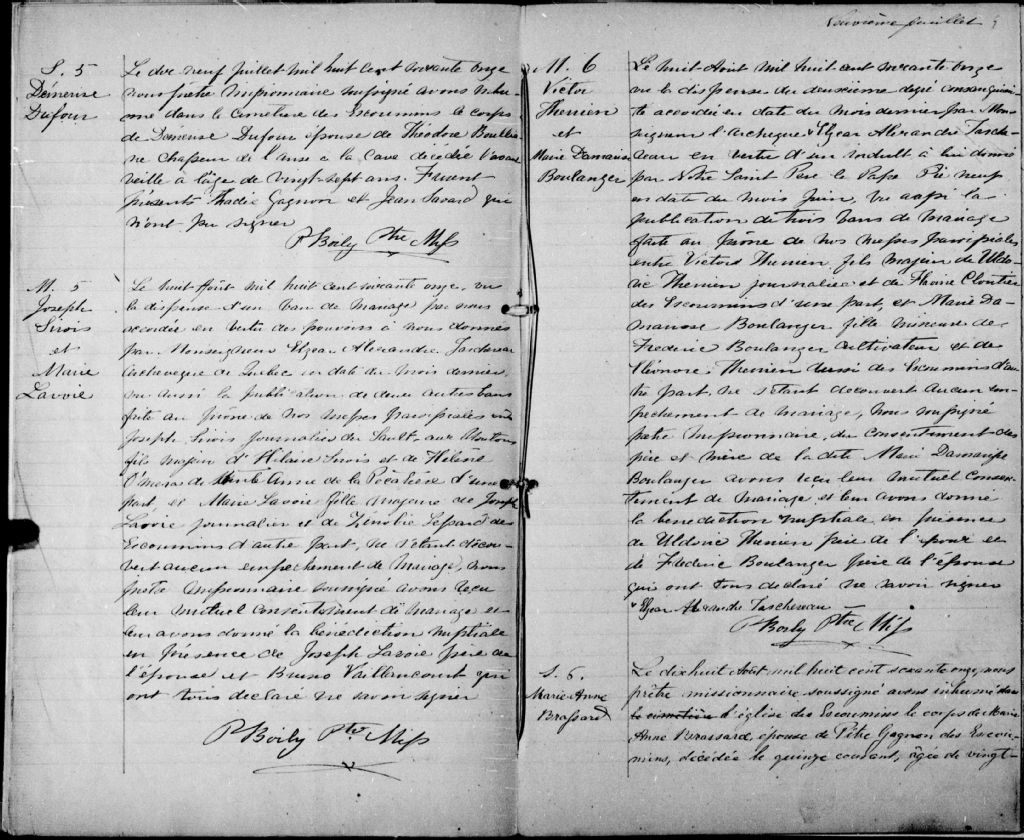 S. 5
Demeuse
Dufour
Le dix neuf juillet mil huit cent soixante onze
nous prêtre missionnaire soussigné avons inhu-
mé dans le cimetière des Escoumins le corps
de Demeuse Dufour épouse de Théodore Boullia-
ne chasseur de l'Anse à la Cave décédée l'avant
veille à l'âge de vingt-sept ans. Furent
présents Thadée Gagnon et Jean Savard qui
n'ont pu signer
P Boily Ptre Miss
M. 5
Joseph
Sirois
et
Marie
Lavoie
Le huit Août mil huit cent soixante onze, vu
la dispense d'un ban de mariage par nous
accordée en vertu des pouvoirs à nous donnés
par Monseigneur Elzear Alexandre Taschereau
Archevêque de Québec en date du mois dernier
vu aussi la publication de deux autres bans
faite au prône de nos messes paroissiales entre
Joseph Sirois journalier du Sault aux Moutons
fils majeur d'Hilaire Sirois et de Helene
O'Mera de Sainte Anne de la Pocatière d'une
part et Marie Lavoie fille majeure de Joseph
Lavoie journalier et de Zénolie Lessard des
Escoumins d'autre part, ne s'étant décou-
vert aucun empêchement de mariage, nous
prêtre missionnaire soussigné avons reçu
leur mutuel consentement de mariage et
leur avons donné la bénédiction nuptiale
en présence de Joseph Lavoie père de
l'épouse et Bruno Vaillancourt qui
ont tous déclaré ne savoir signer
P Boily Ptre Miss
Neuvième feuillet
M. 6
Victor
Therrien
et
Marie Damause
Boulanger
Le huit Août mil huit cent soixante onze
vu la dispense du deuxième degré consanguini-
té accordée en date du mois dernier par Mon-
seigneur l'Archevêque x Elzear Alexandre Tasch-
ereau en vertu d'un indult à lui donné
par Notre Saint Pere le Pape Pie neuf
en date du mois Juin, vu aussi la
publication de trois bans de mariage
faite au prône de nos messes paroissiales
entre Victor Therrien fils majeur de Uldo-
ric Therrien journalier et de Flavie Cloutier
des Escoumins d'une part, et Marie Da-
mause Boulanger fille mineure de
Frederic Boulanger cultivateur et de
Eleonore Therrien aussi des Escoumins d'au-
tre part, ne s'étant découvert aucun em-
pêchement de mariage, Nous soussigné
prêtre missionnaire, du consentement des
père et mère de la dite Marie Damause
Boulanger avons reçu leur mutuel consen-
tement de mariage et leur avons donné
la bénédiction nuptiale en présence
de Uldoric Therrien père de l'époux et
de Frederic Boulanger père de l'épouse
qui ont tous déclaré ne savoir signer
x Elzear Alexandre Taschereau
P Boily Ptre Miss
S. 6.
Marie-Anne
Brassard
Le dix huit Août mil huit cent soixante onze, nous
prêtre missionnaire soussigné avons inhumé dans
le cimetière d'église des Escoumins le corps de Marie
Anne Brassard, épouse de Pitre Gagnon des Escou-
mins, décédée le quinze courant, âgée de vingt-